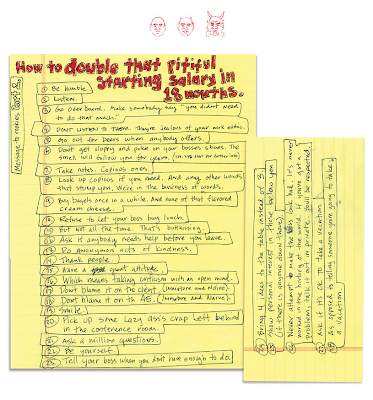 How to double that pitiful
starting salary in
18 months.
Message to rookies
① Be humble.
② Listen.
③ Go overboard. Make somebody say "you didn't need
to do that much."
④ DON'T LISTEN TO THEM. They're jealous of your work ethic.
⑤ Go out for beers when anybody offers.
⑥ Don't get sloppy and puke on your bosses shoes. The
smell will follow you for years.
⑦ Take notes. Copious ones.
⑧ Look up copious if you need. And any other words
that stump you. We're in the business of words.
⑨ Buy bagels once in a while. And none of that flavored
cream cheese.
⑩ Refuse to let your boss buy lunch.
⑪ But not all the time. That's
⑫ Ask if anybody needs help before you leave.
⑬ Do anonymous acts of kindness.
⑭ Thank people.
⑮ Have a great attitude.
⑯ Which means taking criticism with an open mind.
⑰ Don't blame it on the client. (Immature and Naive).
⑱ Don't blame it on the AE. (Immature and Naive).
⑲ Smile.
⑳ Pick up some lazy ass's crap left behind
in the conference room.
㉑ Ask a million questions.
㉒ Be yourself.
㉓ Tell your boss when you don't have enough to do.
Bring 4 ideas to the table instead of 3.
Show personal interest in those below you
(if there is some down there).
Never attempt to make the boss look bad. It's never
worked in the history of the world. If you've got a
problem, tell it to him in private. You'll be respected.
Ask if it's OK to take a vacation.
As opposed to telling someone you're going to take
a vacation.